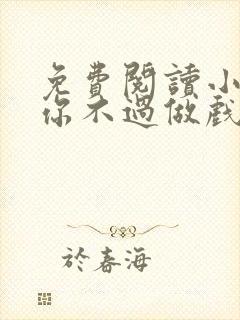 免費閱讀小
你不過做戲
於春海